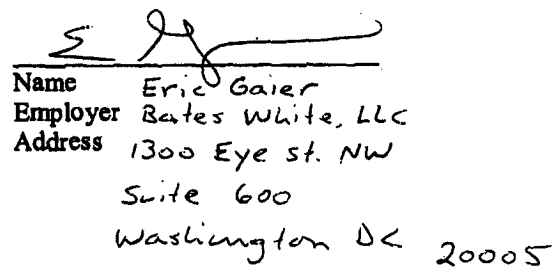 Name Eric Gaier
Employer Bates White, LLC
Address 1300 Eye St. NW
Suite 600
Washington DC 20005